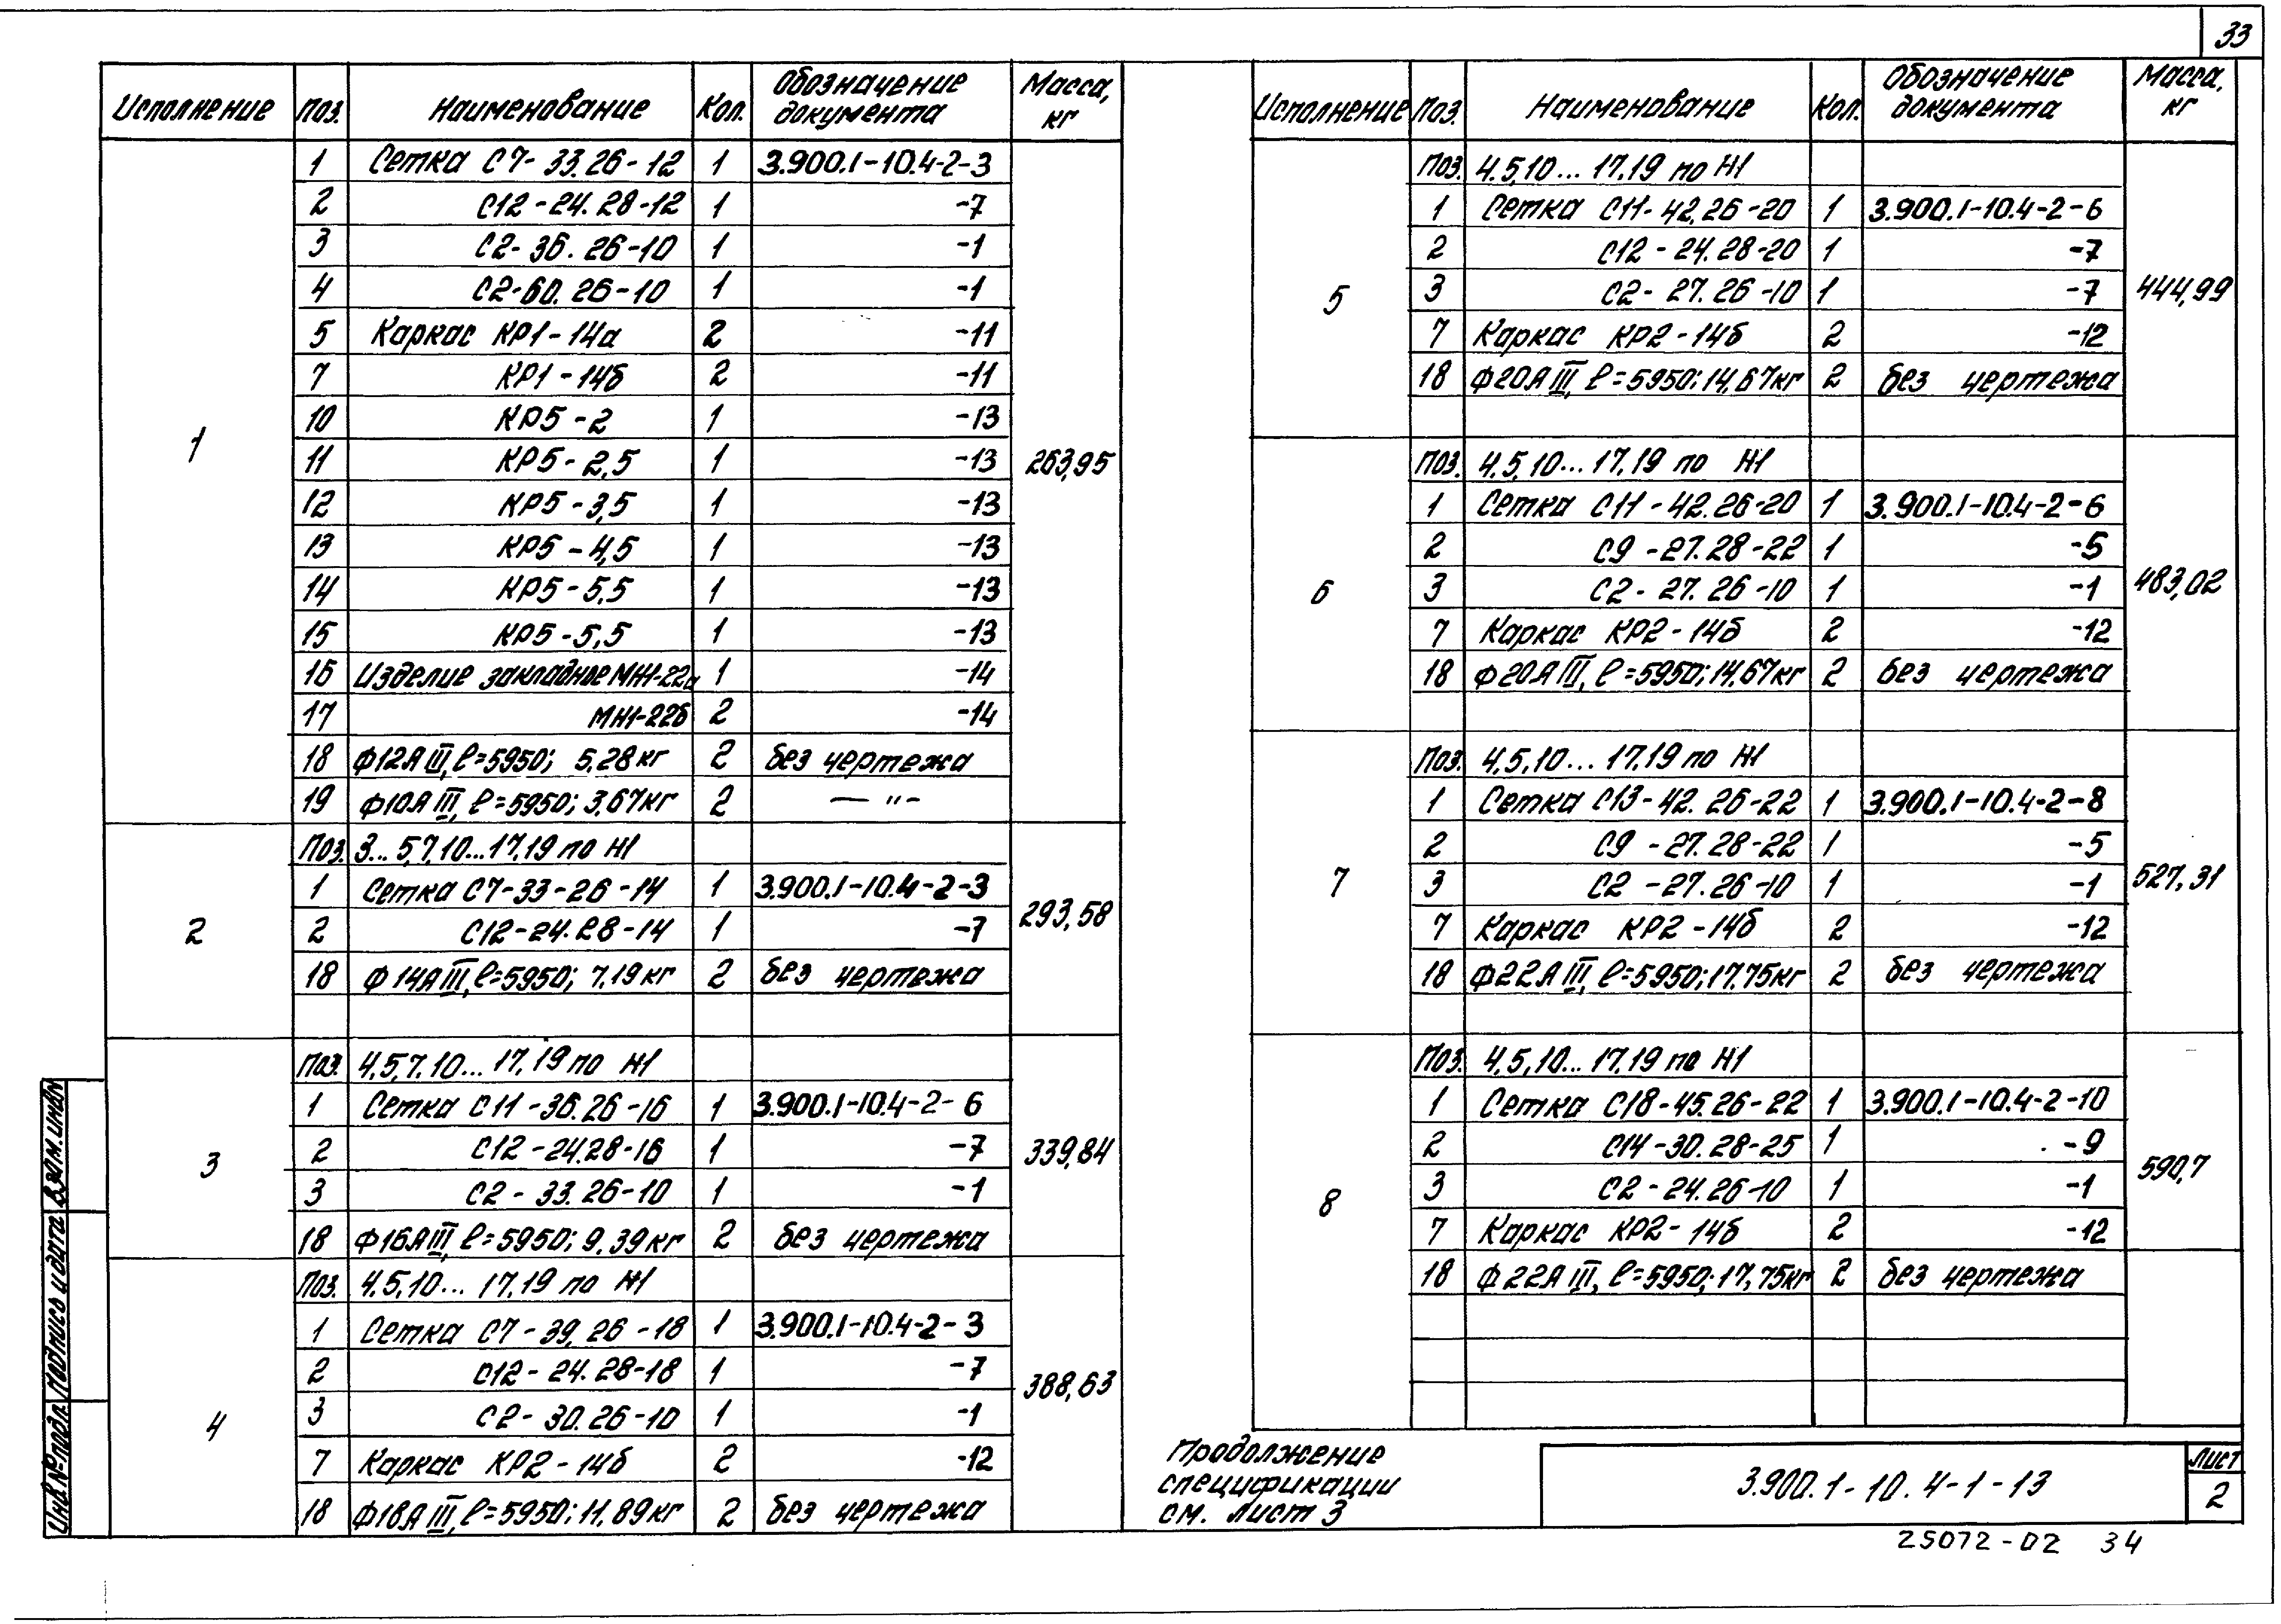 33
Исполнение Поз. Наименование Кол. Обозначение документа Масса, кг
1 263,95
1 Сетка С7-33.26-12 1 3.900.1-10.4-2-3
2 С12-24.28-12 1 -7
3 С2-36.26-10 1 -1
4 С2-60.26-10 1 -1
5 Каркас КР1-14а 2 -11
7 КР1-14б 2 -11
10 КР5-2 1 -13
11 КР5-2,5 1 -13
12 КР5-3,5 1 -13
13 КР5-4,5 1 -13
14 КР5-5,5 1 -13
15 КР5-5,5 1 -13
16 Изделие закладное МН1-22а 1 -14
17 МН1-22б 2 -14
18 Ф12АIII, ℓ=5950; 5,28кг 2 без чертежа
19 Ф10АIII, ℓ=5950; 3,67кг 2 — " -
2 293,58
Поз. 3...5,7,10...17,19 по И1
1 Сетка С7-33-26-14 1 3.900.1-10.4-2-3
2 С12-24.28-14 1 -7
18 Ф14АIII, ℓ=5950; 7,19кг 2 без чертежа
3 339,84
Поз. 4,5,7,10...17,19 по И1
1 Сетка С11-36.26-16 1 3.900.1-10.4-2-6
2 С12-24.28-16 1 -7
3 С2-33.26-10 1 -1
18 Ф16АIII, ℓ=5950; 9,39кг 2 без чертежа
4 388,63
Поз. 4,5,10...17,19 по И1
1 Сетка С7-39,26-18 1 3.900.1-10.4-2-3
2 С12-24.28-18 1 -7
3 С2-30.26-10 1 -1
7 Каркас КР2-14б 2 -12
18 Ф18АIII, ℓ=5950; 11,89кг 2 без чертежа
Исполнение Поз. Наименование Кол. Обозначение документа Масса, кг
5 444,99
Поз. 4,5,10...17,19 по И1
1 Сетка С11-42.26-20 1 3.900.1-10.4-2-6
2 С12-24.28-20 1 -7
3 С2-27.26-10 1 -7
7 Каркас КР2-14б 2 -12
18 Ф20АIII, ℓ=5950; 14,67кг 2 без чертежа
6 483,02
Поз. 4,5,10...17,19 по И1
1 Сетка С11-42.26-20 1 3.900.1-10.4-2-6
2 С9-27.28-22 1 -5
3 С2-27.26-10 1 -1
7 Каркас КР2-14б 2 -12
18 Ф20АIII, ℓ=5950; 14,67кг 2 без чертежа
7 527,31
Поз. 4,5,10...17,19 по И1
1 Сетка С13-42.26-22 1 3.900.1-10.4-2-8
2 С9-27.28-22 1 -5
3 С2-27.26-10 1 -1
7 Каркас КР2-14б 2 -12
18 Ф22АIII, ℓ=5950; 17,75кг 2 без чертежа
8 590,7
Поз. 4,5,10...17,19 по И1
1 Сетка С18-45.26-22 1 3.900.1-10.4-2-10
2 С14-30.28-25 1 -9
3 С2-24.26-10 1 -1
7 Каркас КР2-14б 2 -12
18 Ф22АIII, ℓ=5950; 17,75кг 2 без чертежа
Продолжение
спецификации
см. лист 3
3.900.1-10.4-1-13
Лист
2
25072-02 34
Инв.№подл. Подпись и дата Взам.инв№